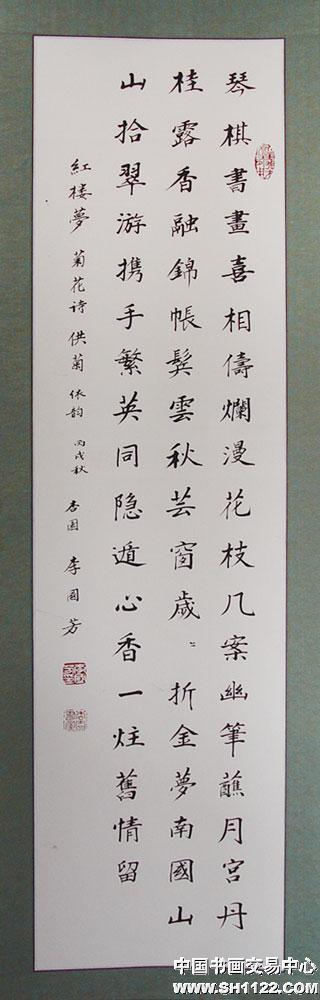 琴棋書畫喜相儔爛漫花枝几案幽筆蘸月宮丹
桂露香融錦帳鬓雲秋芸窗歲〻折金夢南國山
山拾翠游携手繁英同隐遁心香一炷舊情留
紅楼夢 菊花诗 供菊 依韵 丙戌秋 杏园 李国芳
中国书画交易中心
www.SH1122.com